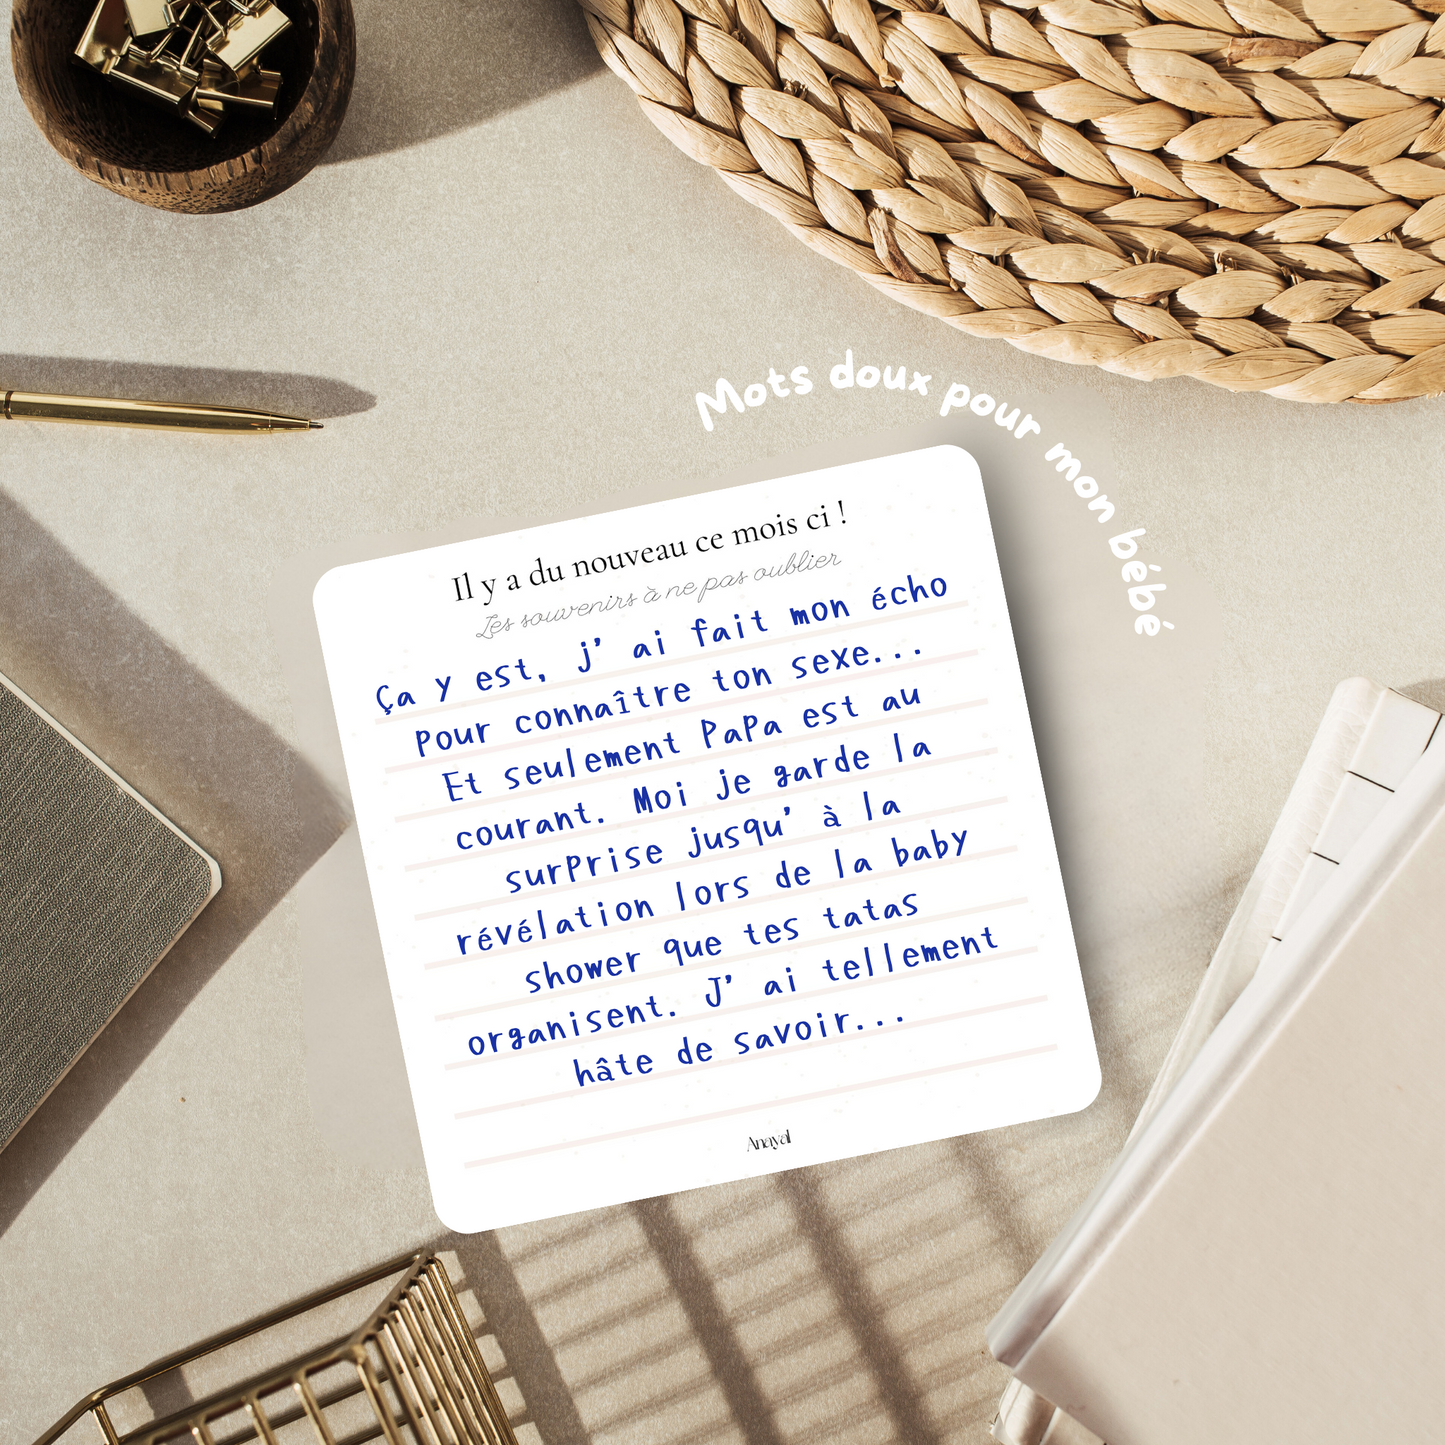 Mots doux pour mon bébé
Il y a du nouveau ce mois ci !
Les souvenirs à ne pas oublier
Ça y est, j' ai fait mon écho
pour connaître ton sexe...
Et seulement Papa est au
courant. Moi je garde la
surprise jusqu' à la
révélation lors de la baby
shower que tes tatas
organisent. J' ai tellement
hâte de savoir...
Anayal